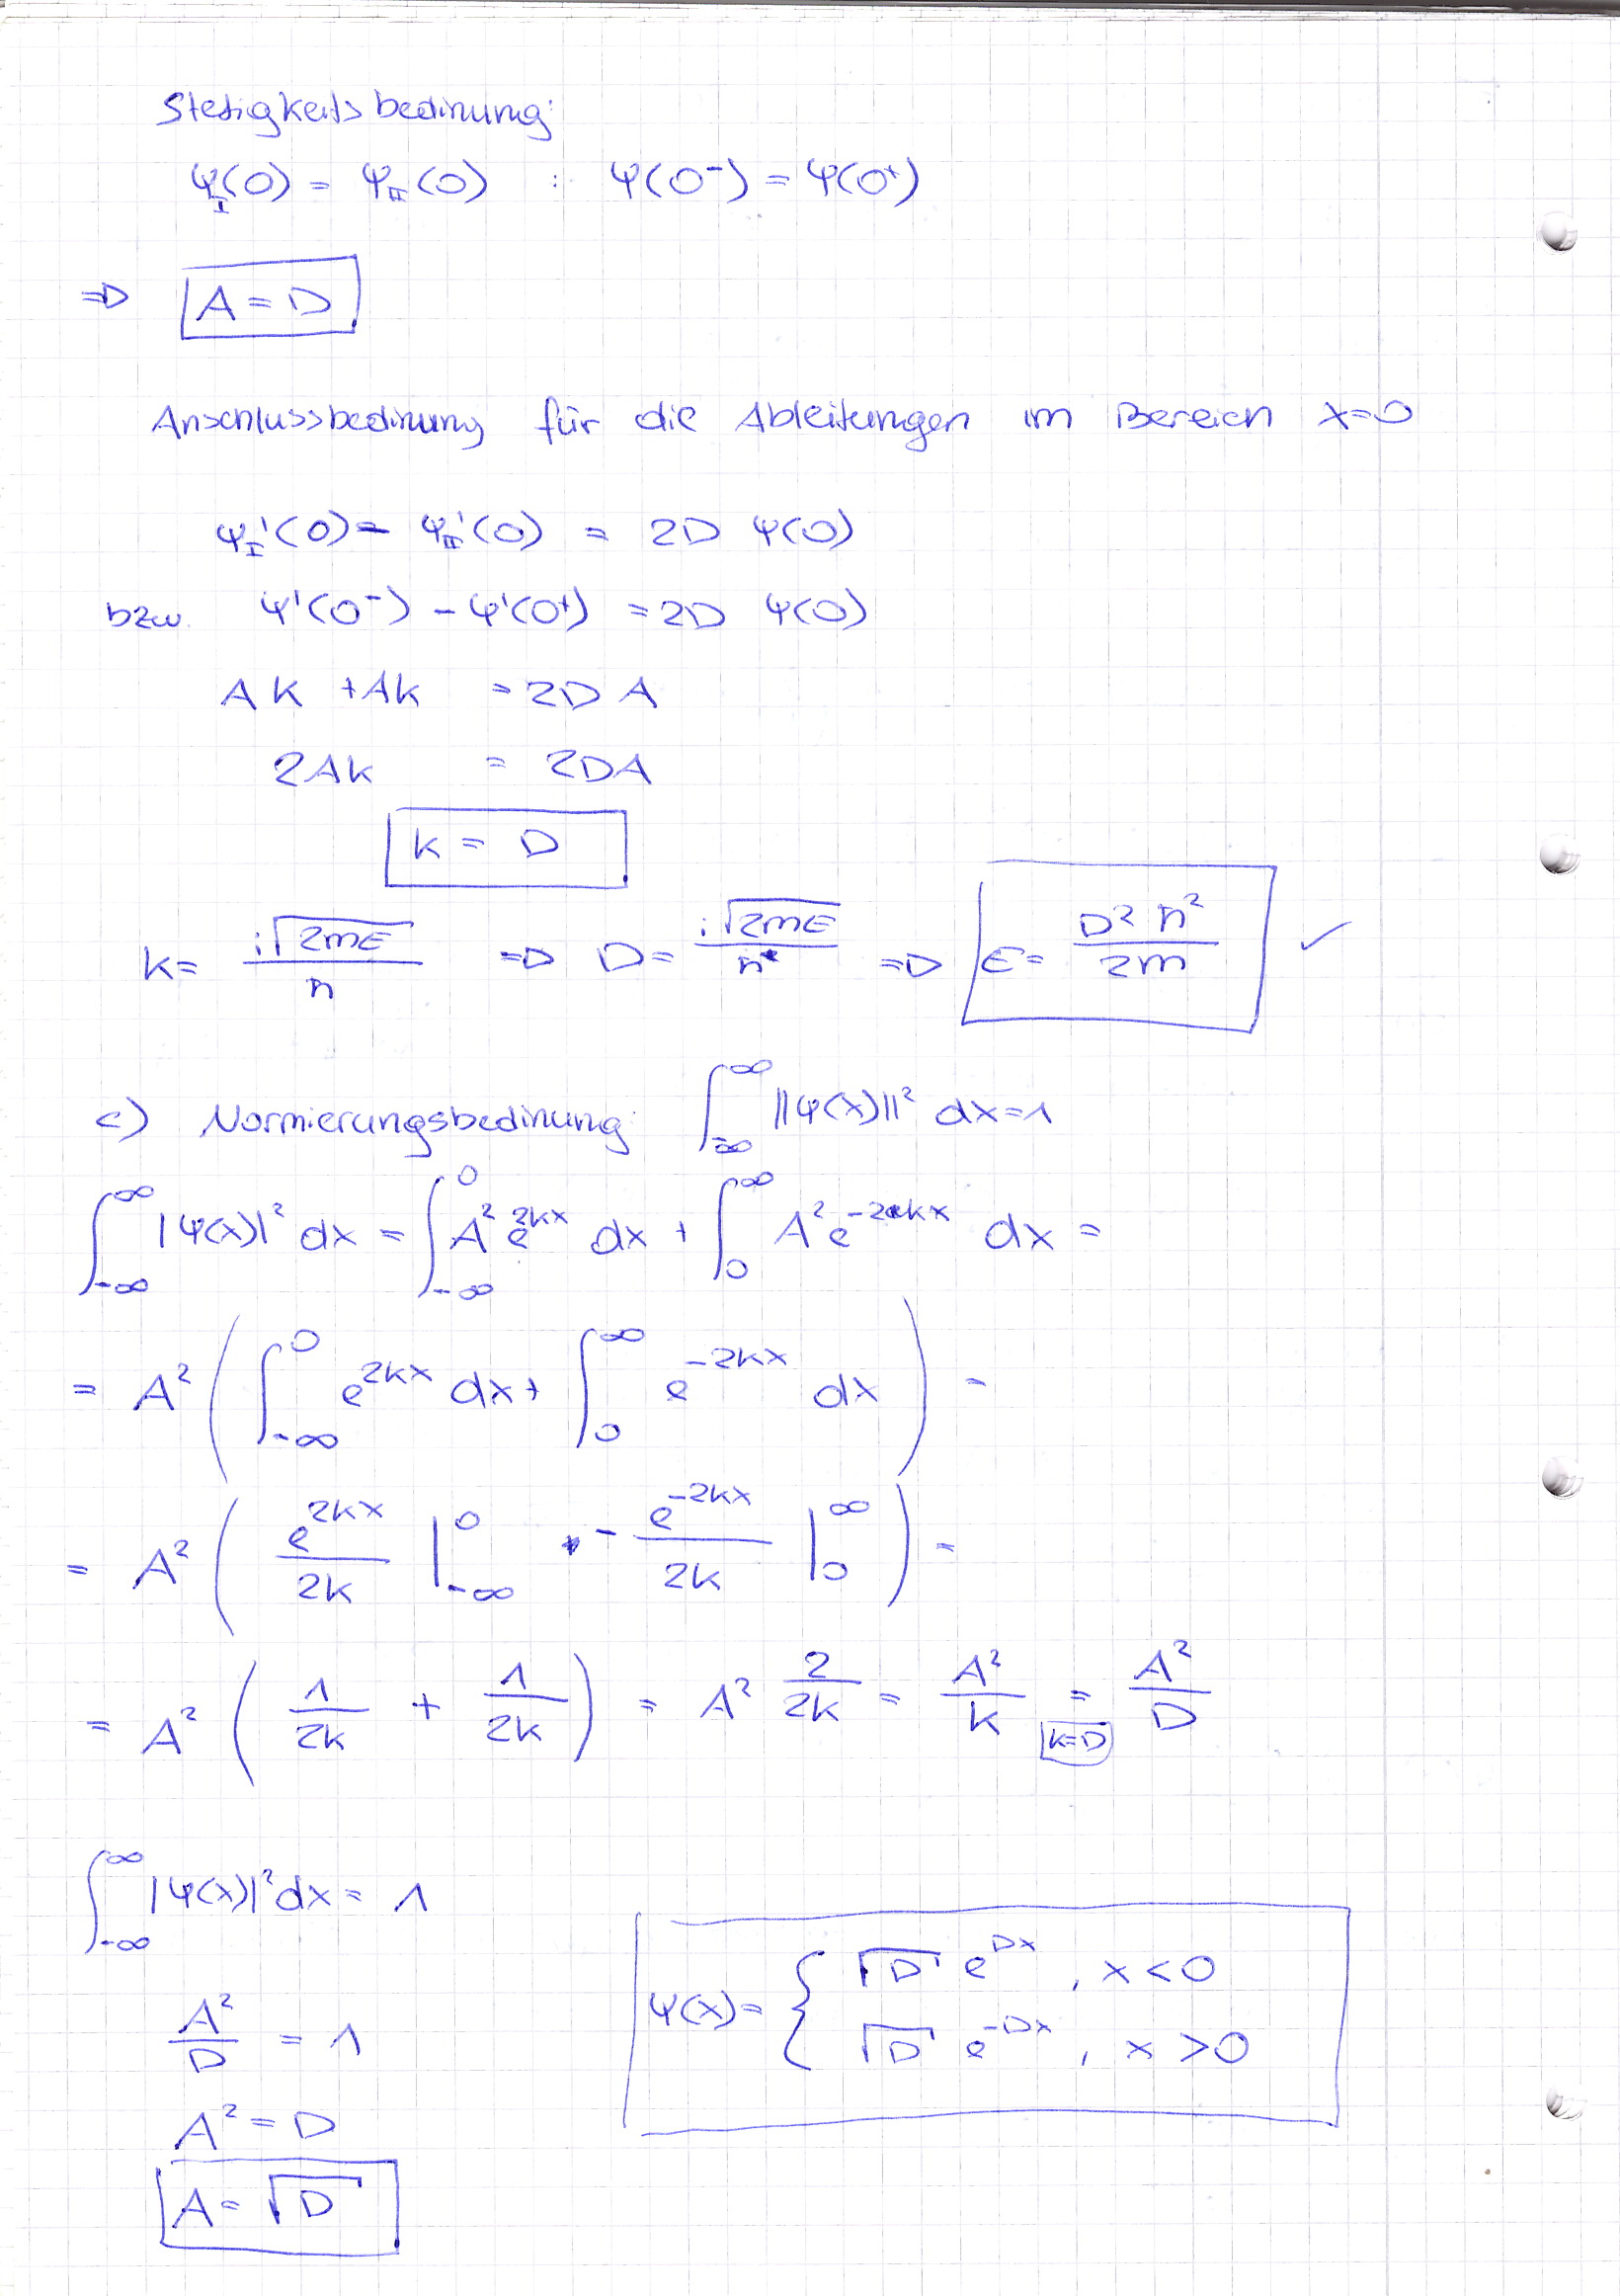 Stetigkeitsbedinung:
Ψ_I(0) = Ψ_II(0) : Ψ(0⁻) = Ψ(0⁺)
⇒ A = D
Anschlussbedinung für die Ableitungen im Bereich x=0
Ψ_I'(0) - Ψ_II'(0) = 2D Ψ(0)
bzw. Ψ'(0⁻) - Ψ'(0⁺) = 2D Ψ(0)
Ak + Ak = 2DA
2Ak = 2DA
k = D
k = i√(2mE)/ħ ⇒ D = i√(2mE)/ħ ⇒ E = D²ħ²/2m ✓
c) Normierungsbedinung: ∫_{-∞}^{∞} ||Ψ(x)||² dx = 1
∫_{-∞}^{∞} |Ψ(x)|² dx = ∫_{-∞}^{0} A² e^{2kx} dx + ∫_{0}^{∞} A² e^{-2kx} dx =
= A² ( ∫_{-∞}^{0} e^{2kx} dx + ∫_{0}^{∞} e^{-2kx} dx ) =
= A² ( e^{2kx}/2k |_{-∞}^{0} - e^{-2kx}/2k |_{0}^{∞} ) =
= A² ( 1/2k + 1/2k ) = A² 2/2k = A²/k = A²/D
k=D
∫_{-∞}^{∞} |Ψ(x)|² dx = 1
A²/D = 1
A² = D
A = √D
Ψ(x) = { √D e^{Dx}, x < 0
√D e^{-Dx}, x > 0